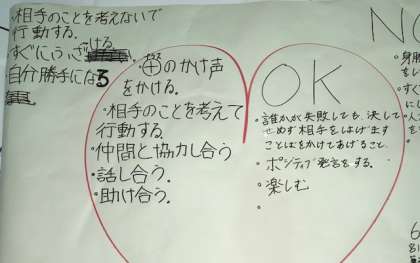 相手のことを考えないで
行動する.
すぐにふざける
自分勝手になる
㊉のかけ声
をかける.
・相手のことを考えて
行動する.
・仲間と協力し合う
・話し合う.
・助け合う.
OK
・誰かが失敗しても、決して
せめず相手をはげます
ことばをかけてあげること.
・ポジティブ発言をする.
・楽しむ
NO